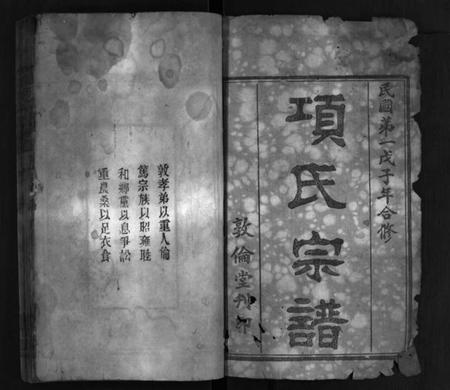 民國第一戊子年合修
項氏宗譜
敦倫堂刊印
敦孝弟以重人倫
篤宗族以昭雍睦
和鄉黨以息爭訟
重農桑以足衣食